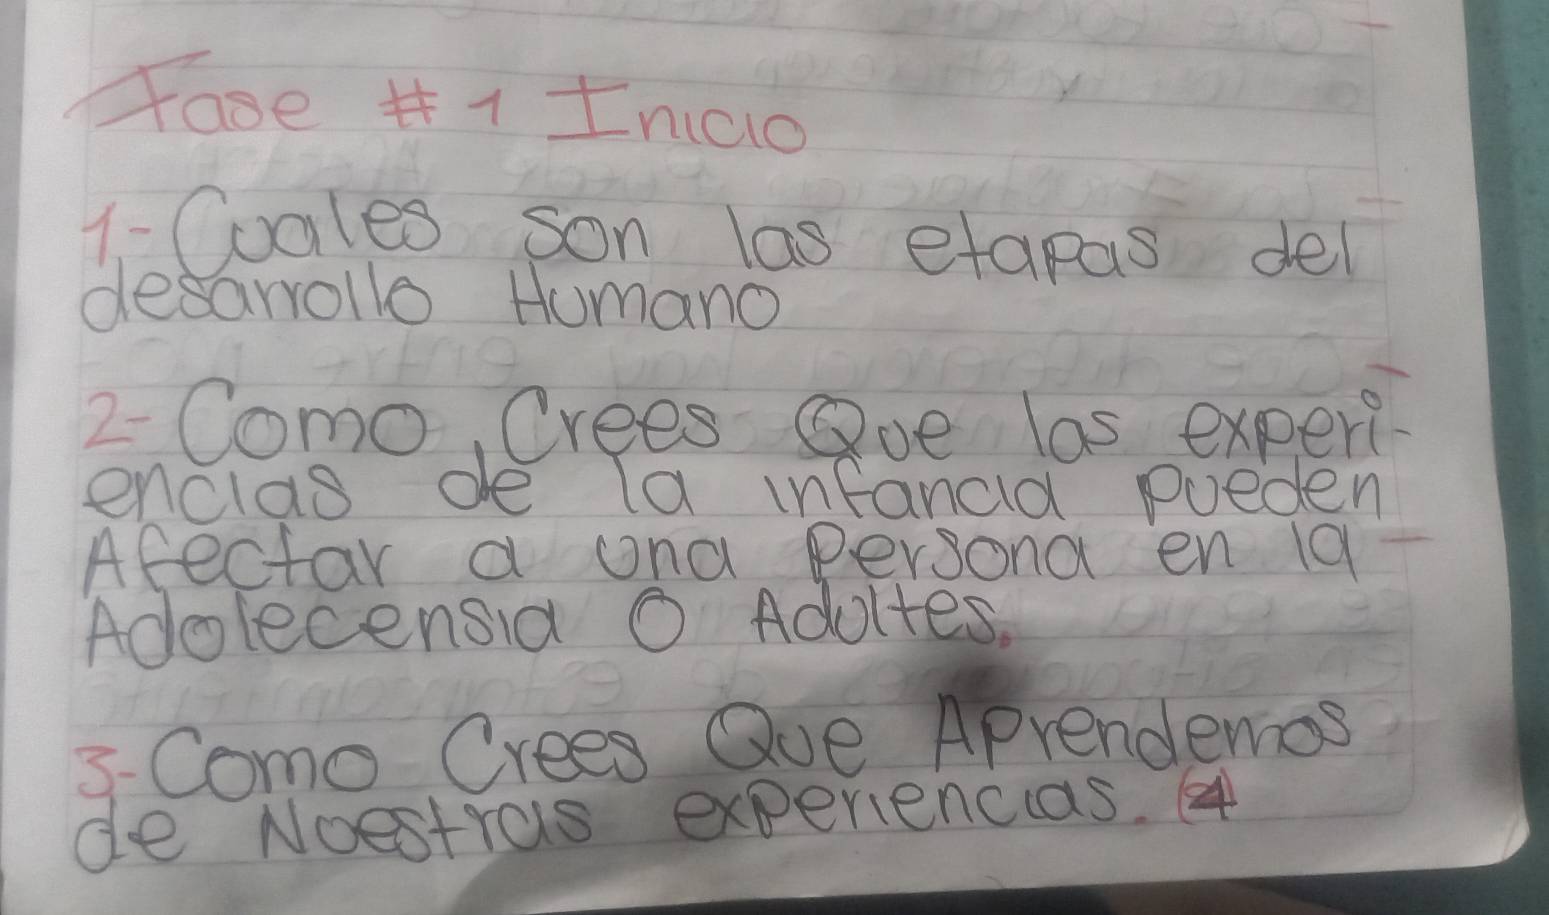 Fase #1 Inicio
1- Cuales son las etapas del
desarrollo Humano
2- Como Crees Que las experi-
encias de la infancia pueden
Afectar a una persona en la
Adolecensia O Adultes.
3- Como Crees Que Aprendemos
de Nuestras experiencias. (4